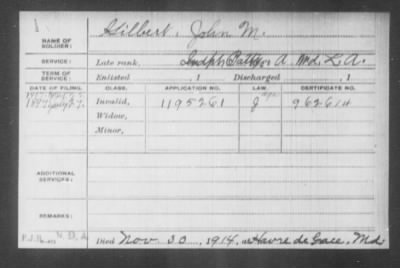 NAME OF SOLDIER: Gilbert, John M.
SERVICE: Late rank, Indpt Batty A. Md. L. A.
TERM OF SERVICE: Enlisted , 1 Discharged , 1
DATE OF FILING. CLASS. APPLICATION NO. LAW. CERTIFICATE NO.
1897 July 27. Invalid, 1195261 J 962614
Widow,
Minor,
ADDITIONAL SERVICES:
REMARKS:
Died Nov. 30, 1914, at Havre de Grace, Md